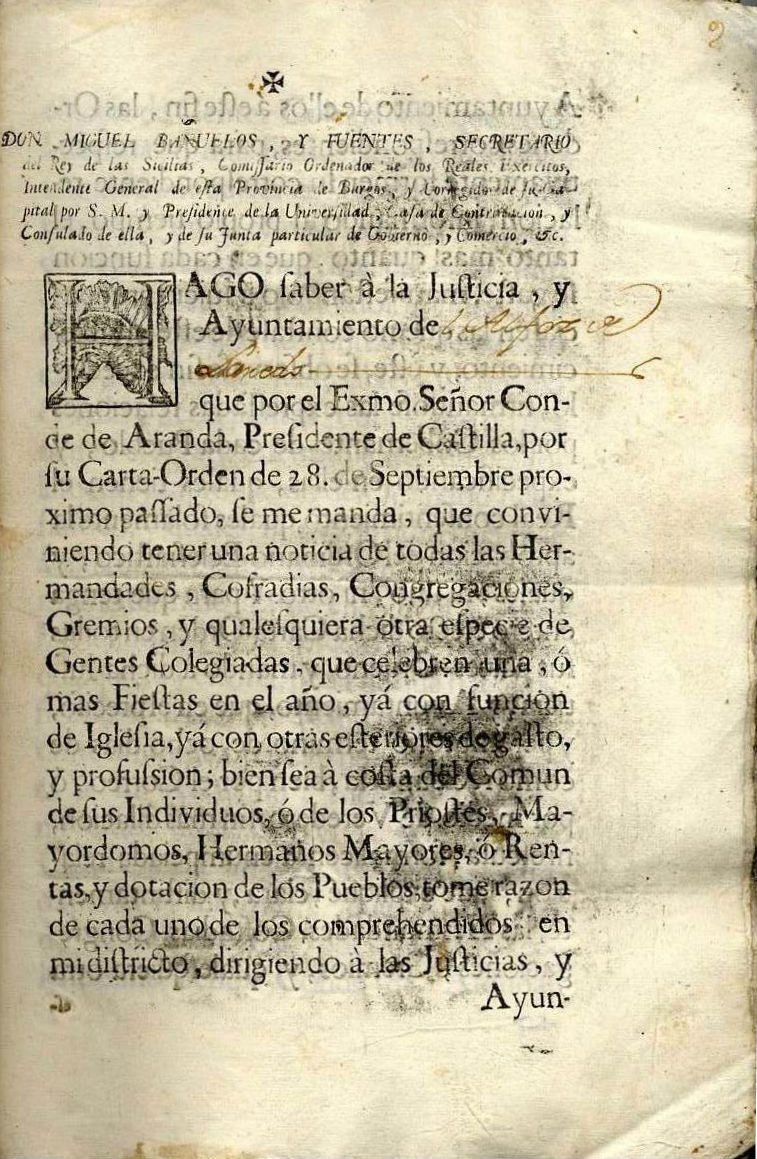 2
✠
DON MIGUEL BAÑUELOS, Y FUENTES, SECRETARIO
del Rey de las Sicilias, Comiſſario Ordenador de los Reales Exercitos,
Intendente General de eſta Provincia de Burgos, y Corregidor de ſu Ca-
pital por S. M. y Preſidente de la Univerſidad, Caſa de Contratacion, y
Conſulado de ella, y de ſu Junta particular de Govierno, y Comercio, &c.
HAGO ſaber à la Juſticia, y
Ayuntamiento de
que por el Exmo. Señor Con-
de de Aranda, Preſidente de Caſtilla, por
ſu Carta-Orden de 28. de Septiembre pro-
ximo paſſado, ſe me manda, que convi-
niendo tener una noticia de todas las Her-
mandades, Cofradias, Congregaciones,
Gremios, y qualeſquiera otra eſpecie de
Gentes Colegiadas, que celebren una, ó
mas Fieſtas en el año, yá con funcion
de Igleſia, yá con otras eſteriores de gaſto,
y profuſsion; bien ſea à coſta del Comun
de ſus Individuos, ó de los Prioſtes, Ma-
yordomos, Hermanos Mayores, ó Ren-
tas, y dotacion de los Pueblos, tome razon
de cada uno de los comprehendidos en
mi diſtricto, dirigiendo à las Juſticias, y
Ayun-